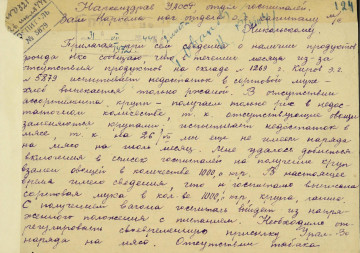 Наркомздрав УССР отдел госпиталей
124
Зам Наркома нач отдела
№ 5879
Прилагая при сем сведения о наличии продуктов
фонда НКО сообщаю, что в течение месяца из-за
отсутствия продуктов на складе № 1869 г. Киров э.г.
№ 5879 испытывает недостаток в сортовой муке -
хлеб выпекается только ржаной. В отсутствии
ассортимента круп - получаем только рис в недос-
таточном количестве, т.к. отсутствующие овощи
заменили крупами, испытывает недостаток в
мясе, т.к. на 26/ мы еще не имеем наряда
на мясо на июль месяц. Мне удалось добиться
включения в список госпиталей на получение круп
взамен овощей в количестве 1000 кгр. В настоящее
время имею сведения, что к госпиталю выписана
сортовая мука в кол-ве 1000 кгр, крупа, лапша.
С получением вагона госпиталь выйдет из напря-
женного положения с питанием. Необходимо от-
регулировать своевременную присылку
наряда на мясо. Отсутствие табака